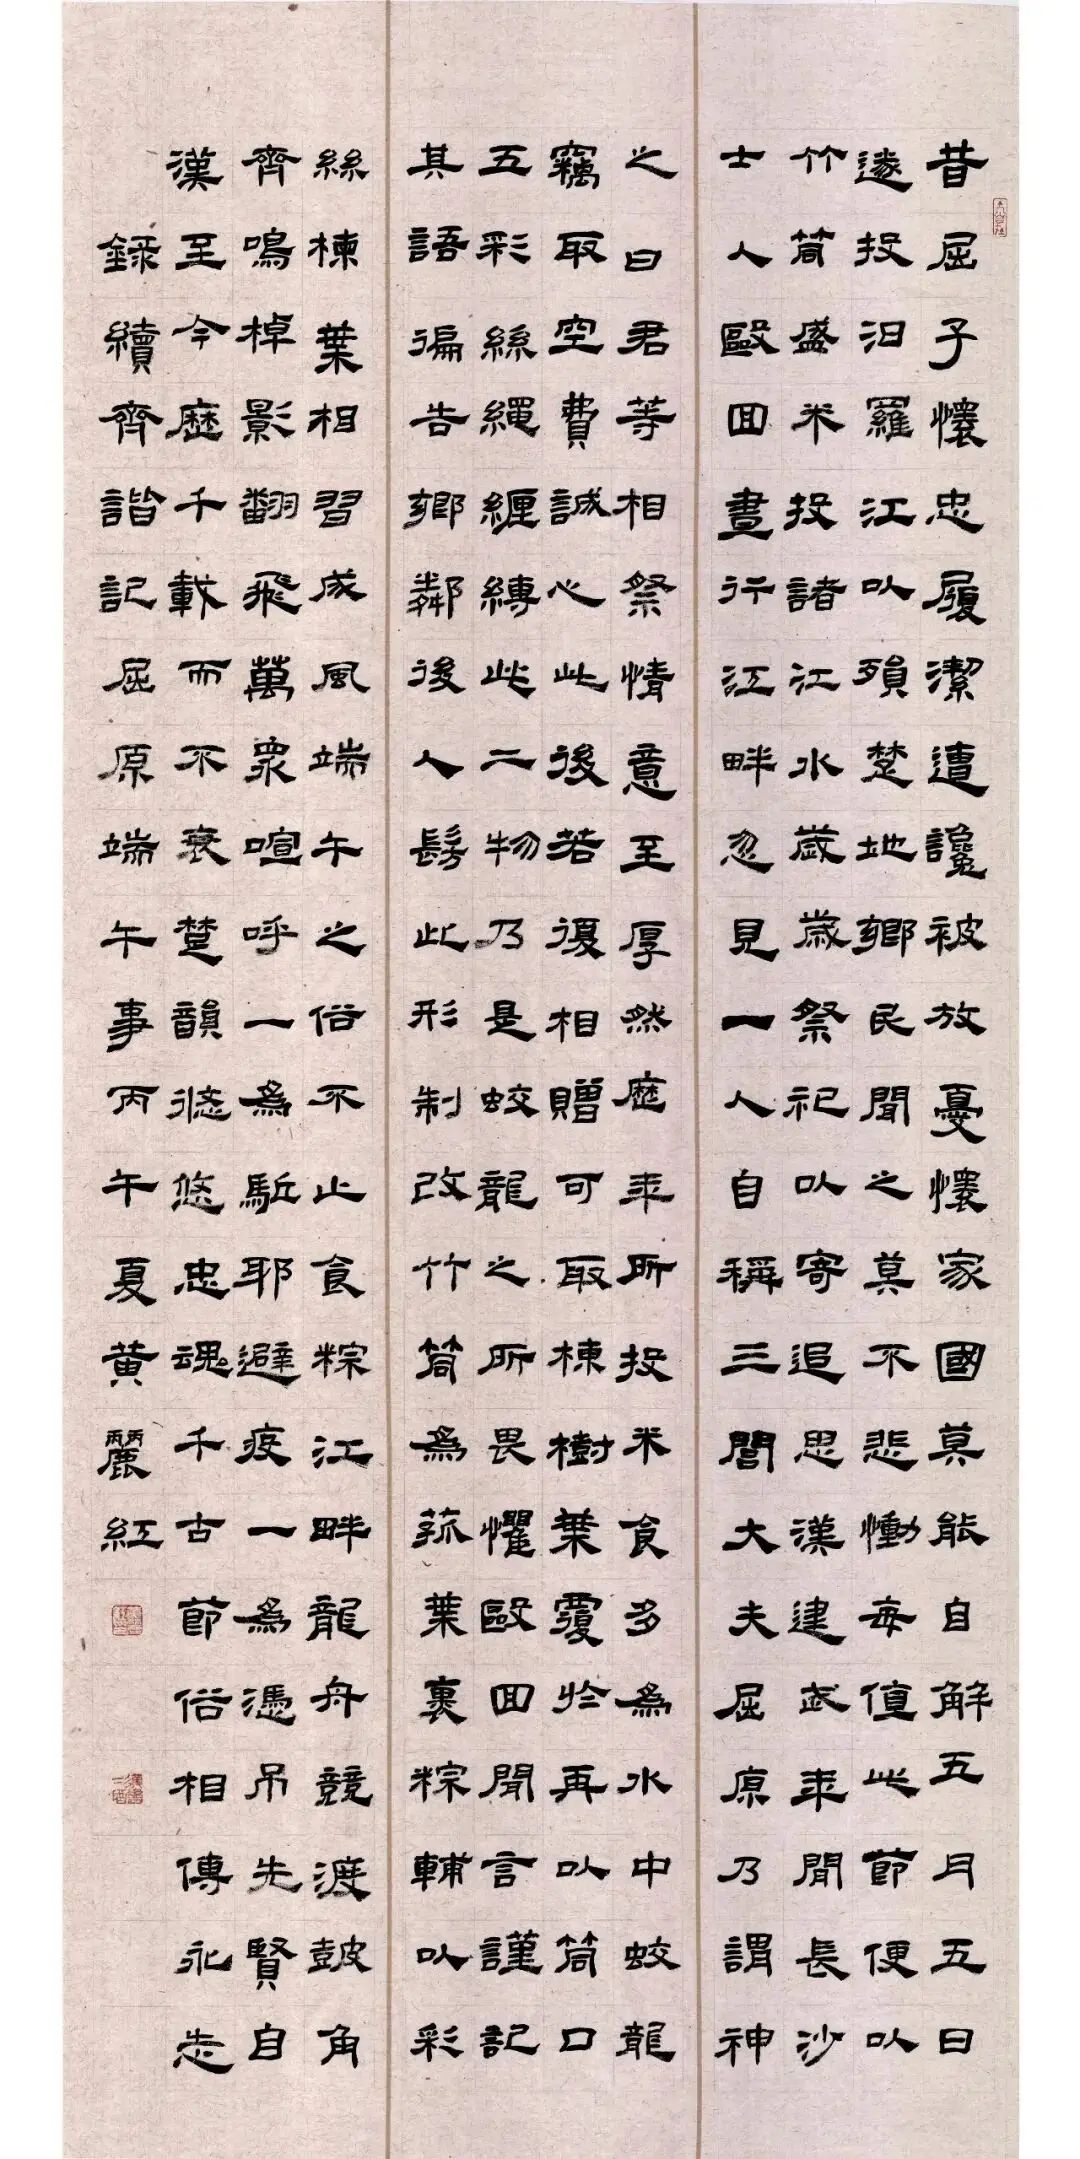 昔屈子懷忠履潔遭讒被放憂懷家國莫能自解五月五日
遂投汨羅江以殞楚地鄉民聞之莫不悲慟每值此節便以
竹筒盛米投諸江水歲歲祭祀以寄追思漢建武年間長沙
士人歐回晝行江畔忽見一人自稱三閭大夫屈原乃謂神
之曰君等相祭情意至厚然歷年所投米食多為水中蛟龍
竊取空費誠心此後若復相贈可取楝樹葉覆於再以筒口
五彩絲繩纏縛此二物乃是蛟龍之所畏懼歐回聞言謹記
其語徧告鄉鄰後人髣此形制改竹筒為菰葉裹粽輔以彩
絲楝葉相習成風端午之俗不止食粽江畔龍舟競渡鼓角
齊鳴棹影翻飛萬眾喧呼一為駈耶避疫一為憑吊先賢自
漢至今歷千載而不衰楚韻悠悠忠魂千古節俗相傳永志
錄續齊諧記屈原端午事丙午夏黃麗紅